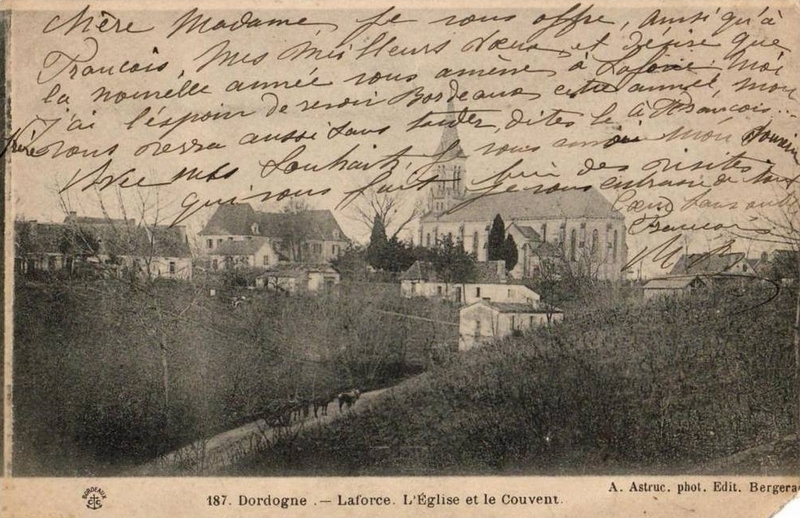 Chère Madame, je vous offre, Ainsi qu'à
François, Mes Meilleurs Vœux et désire que
la nouvelle année vous amène à Laforce, Moi
j'ai l'espoir de revoir Bordeaux cette année, mon
vous verra aussi sans tarder, dites le à François...
Avec mes Souhaits, je vous
qui vous bien des visites
je vous embrasse de tout
Cœur sans oublier
François
BORDEAUX
187. Dordogne. — Laforce. L'Église et le Couvent.
A. Astruc. phot. Edit. Bergera